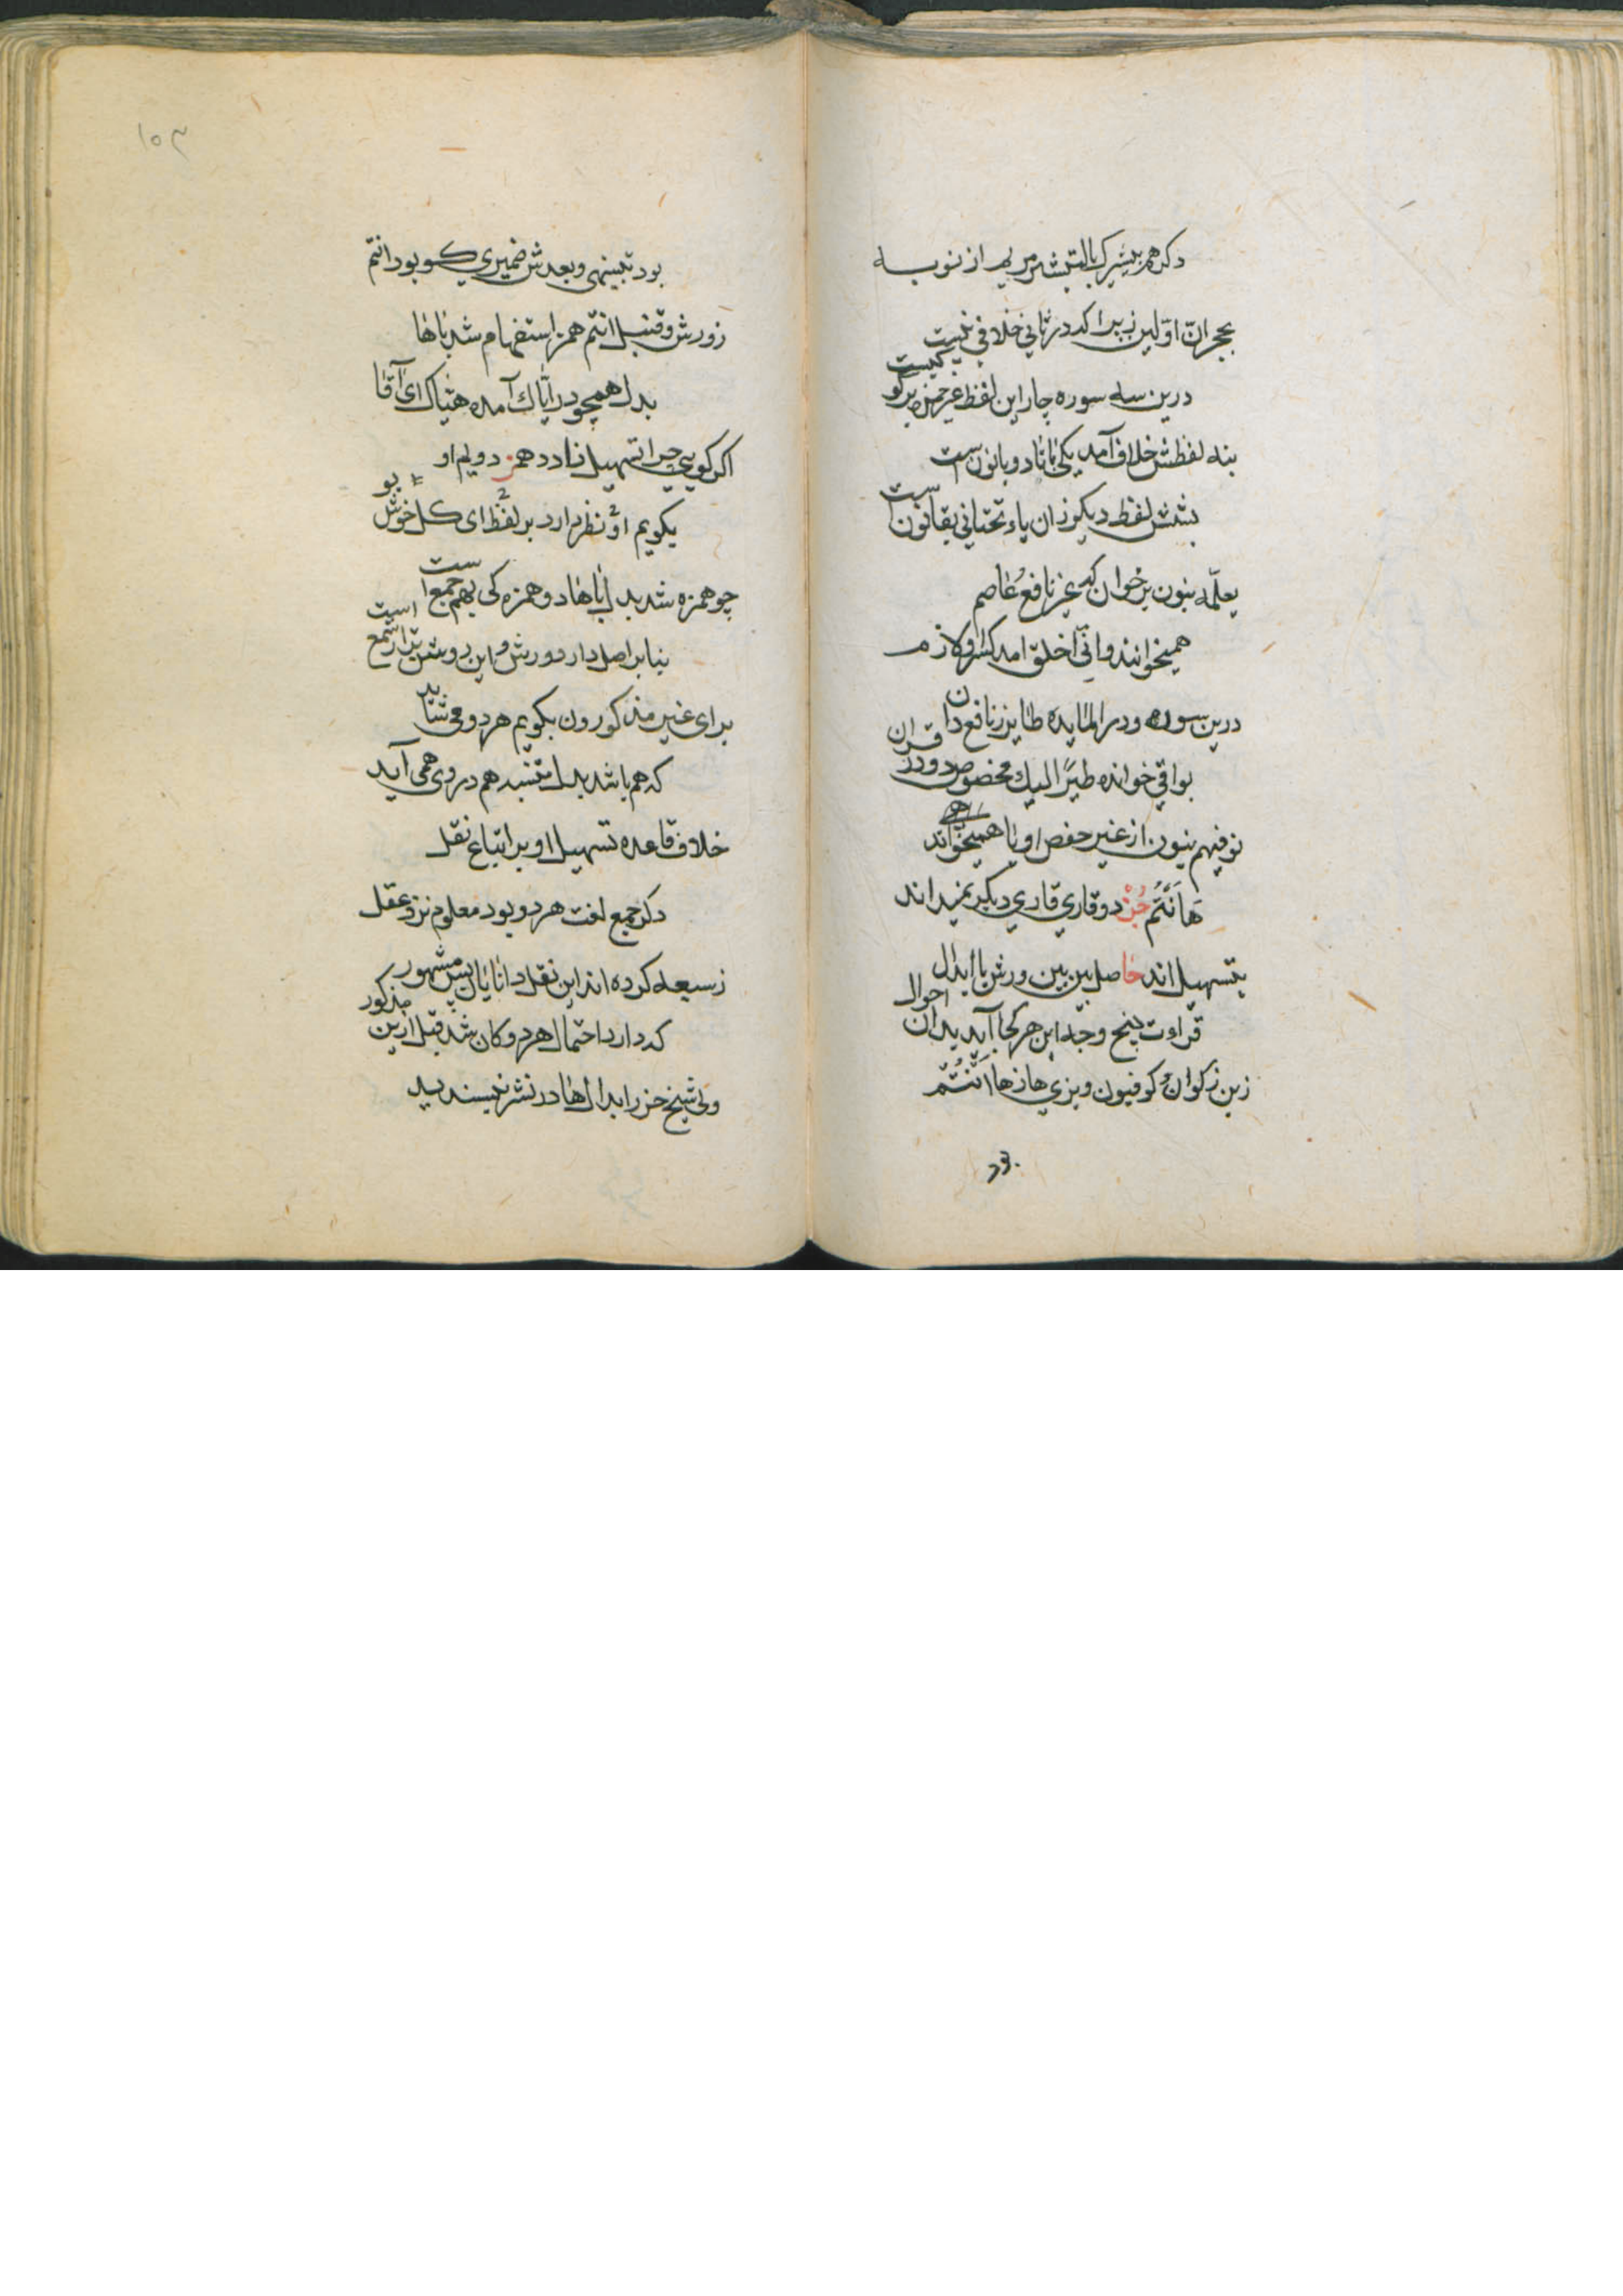 دکر هم یبشرک با لتبشر مریم از نوبه
بجر ان اولین زیرا که در ثانی خلافی نیست
درین سه سوره چار این لفظ غیر حمزه بر کو کیست
بنه لفظش خلاف آمد یکی با تا دو با نون است
بشش لفظ دیکر زان یاء تحتانی بقانون است
یعلمه بنون بر خوان که غیر نافع و عاصم
همیخوانند وانی اخلق امد کسر او لازم
درین سوره و در المایده طایر ز نافع دان
بواقی خوانده طیرا لیک مخصوص دو در قران
نوفیهم بنون از غیر حفص او یا همیخواند
هَاَنْتُم جُزْ دو قاری قاری دیکر نمیداند
بتسهیل اند حاصل بین بین ورش با ابدال
قراءت پنج وجه این هر کجا آید بدان احوال
ز بن ذکوان و کوفیون و بزی ها ز ها انتم
بود تنبیهی و بعدش ضمیری کو بود انتم
ز ورش و قنبل انتم همز استفهام شد با ها
بدل همچو در ایاک آمده هیاک ای آقا
اکر کویی چرا تسهیل نادد همز دویم او
بکویم او نظر دارد بر لفظ ای کل خوش بو
چو همزه شد بدل با ها دو همزه کی بهم جمع است
بنا بر اصل دارد ورش و این روشن تر از شمع است
برای غیر مذکورون بکویم هر دو می شاید
که هم باشد بدل تنبیه هم در وی همی آید
خلاف قاعده تسهیل او بر اتباع نقل
دکر جمع لغت هر دو بود معلوم نزد عقل
ز سبعه کرده اند این نقل دانایان بس مشهور
که دارد احتمال هر دو کان شد قبل ازین مذکور
ولی شیخ جزر ابدال ها در نشر نپسندید